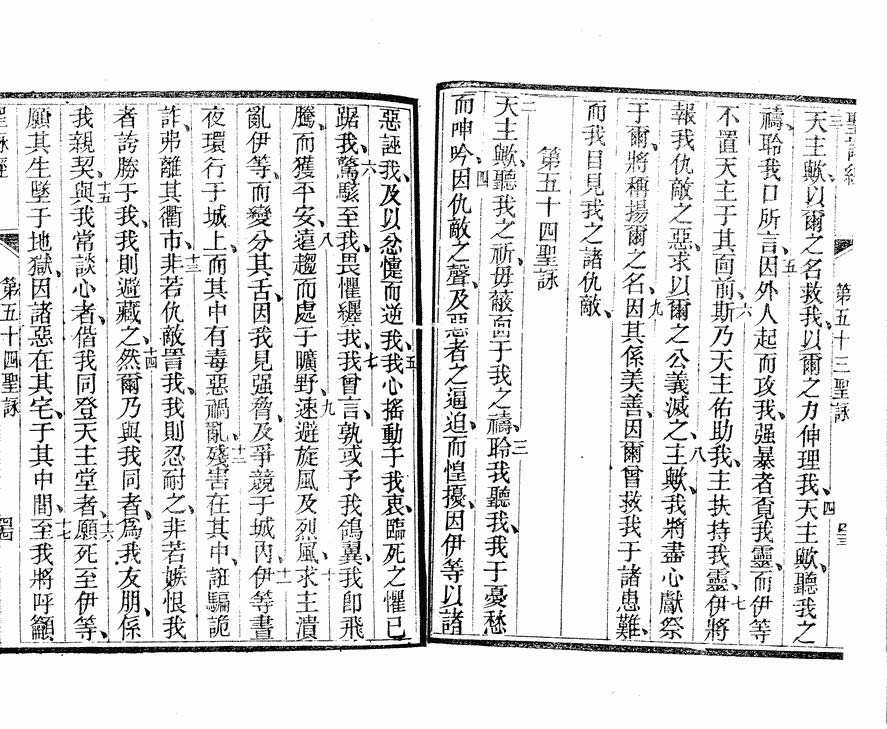 第五十三聖詠
三
天主歟、以爾之名救我、以爾之力伸理我、四天主歟、聽我之
禱、聆我口所言、五因外人起而攻我、强暴者覔我靈、而伊等
不置天主于其向前、六斯乃天主佑助我、主扶持我靈、七伊將
報我仇敵之惡、求以爾之公義滅之、八主歟、我將盡心獻祭
于爾、將稱揚爾之名、因其係美善、九因爾曾救我于諸患難、
而我目見我之諸仇敵、
第五十四聖詠
二天主歟、聽我之祈、毋蔽面于我之禱、三聆我聽我、我于憂愁
而呻吟、四因仇敵之聲、及惡者之逼迫、而惶擾、因伊等以諸
惡誣我、及以忿懥而逆我、五我心搖動于我衷、臨死之懼已
踞我、六驚駭至我、畏懼纒我、七我曾言、孰或予我鴿翼、我卽飛
騰、而獲平安、八遠趨而處于曠野、九速避旋風及烈風、十求主潰
亂伊等、而變分其舌、因我見强脅及爭競于城內、十一伊等晝
夜環行于城上、而其中有毒惡禍亂、十二殘害在其中、誑騙詭
詐、弗離其衢市、十三非若仇敵詈我、我則忍耐之、非若嫉恨我
者誇勝于我、我則避藏之、十四然爾乃與我同者、爲我友朋、係
我親契、十五與我常談心者、偕我同登天主堂者、十六願死至伊等、
願其生墜于地獄、因諸惡在其宅、于其中間、十七至我將呼籲
第五十四聖詠